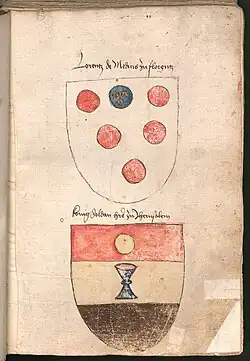 Lorentz de Medicis zu florentz
kunig soldan herr zu Jherusalem